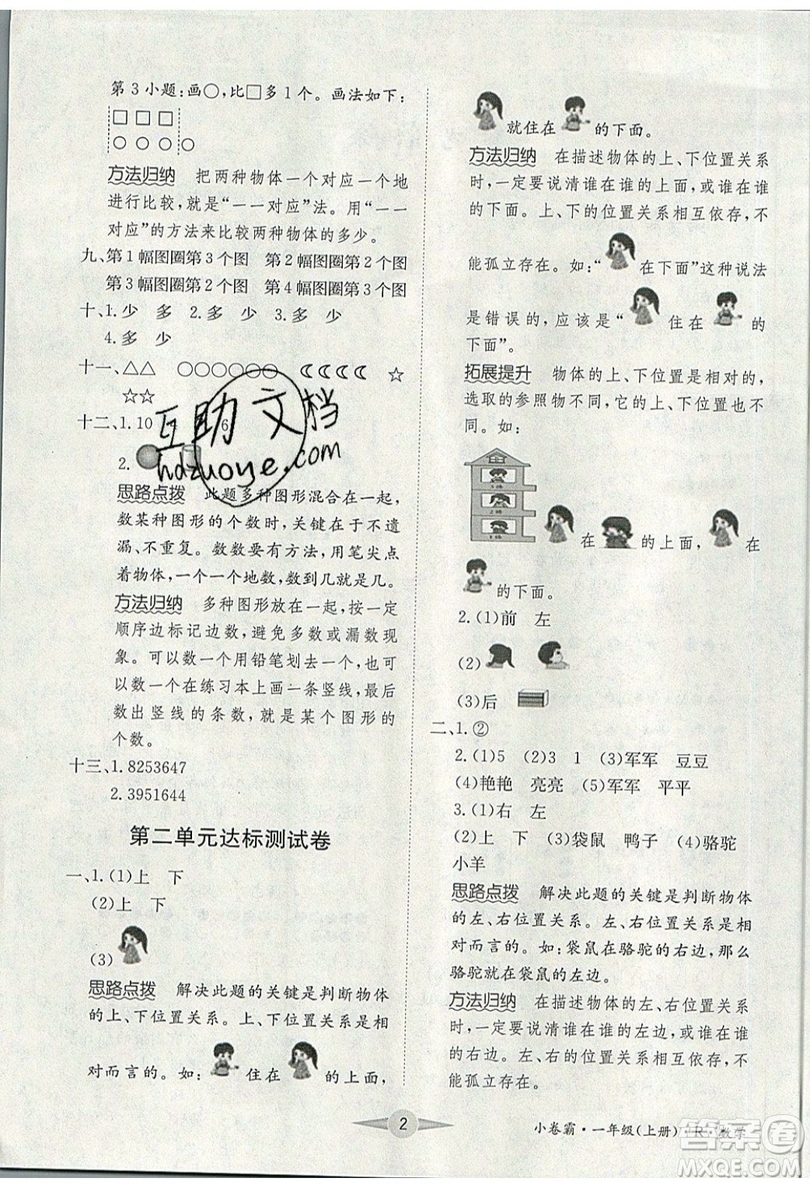 第3小题:画○,比□多1个。画法如下:
□□□
○○○○
方法归纳 把两种物体一个对应一个地
进行比较,就是“一一对应”法。用“一一
对应”的方法来比较两种物体的多少。
九、第1幅图圈第3个图 第2幅图圈第2个图
第3幅图圈第2个图 第4幅图圈第3个图
十、1.少 多 2.多 少 3.多 少
4.多 少
十一、△△ ○○○○○○ ☾☾☾☾ ☆
☆☆
十二、1.10 6
2.
互助文档
hdzuoye.com
思路点拨 此题多种图形混合在一起,
数某种图形的个数时,关键在于不遗
漏、不重复。数数要有方法,用笔尖点
着物体,一个一个地数,数到几就是几。
方法归纳 多种图形放在一起,按一定
顺序边标记边数,避免多数或者漏数
现象。可以数一个用铅笔划去一个,也
可以数一个在练习本上画一条竖线,最后
数出竖线的条数,就是某个图形的
个数。
十三、1.8253647
2.3951644
第二单元达标测试卷
一、1.(1)上 下
(2)上 下
(3)
思路点拨 解决此题的关键是判断物体
的上、下位置关系。上、下位置关系是相
对而言的。如: 住在 的上面,
就住在 的下面。
方法归纳 在描述物体的上、下位置关系
时,一定要说清谁在谁的上面,或谁在谁
的下面。上、下的位置关系相互依存,不
能孤立存在。如:“ 在下面”这种说法
是错误的,应该是“ 住在 的
下面”。
拓展提升 物体的上、下位置是相对的,
选取的参照物不同,它的上、下位置也
不同。如:
在 的上面, 在
的下面。
2.(1)前 左
(2)
(3)后
二、1.②
2.(1)5 (2)3 1 (3)军军 豆豆
(4)艳艳 亮亮 (5)军军 平平
3.(1)右 左
(2)上 下 (3)袋鼠 鸭子 (4)骆驼
小羊
思路点拨 解决此题的关键是判断物体
的左、右位置关系。左、右位置关系是相
对而言的。如:袋鼠在骆驼的右边,那么
骆驼就在袋鼠的左边。
方法归纳 在描述物体的左、右位置关系
时,一定要说清谁在谁的左边,或谁在谁
的右边。左、右的位置关系相互依存,不
能孤立存在。
2
小卷霸·一年级(上册)·R·数学
答案圈
MXQE.COM